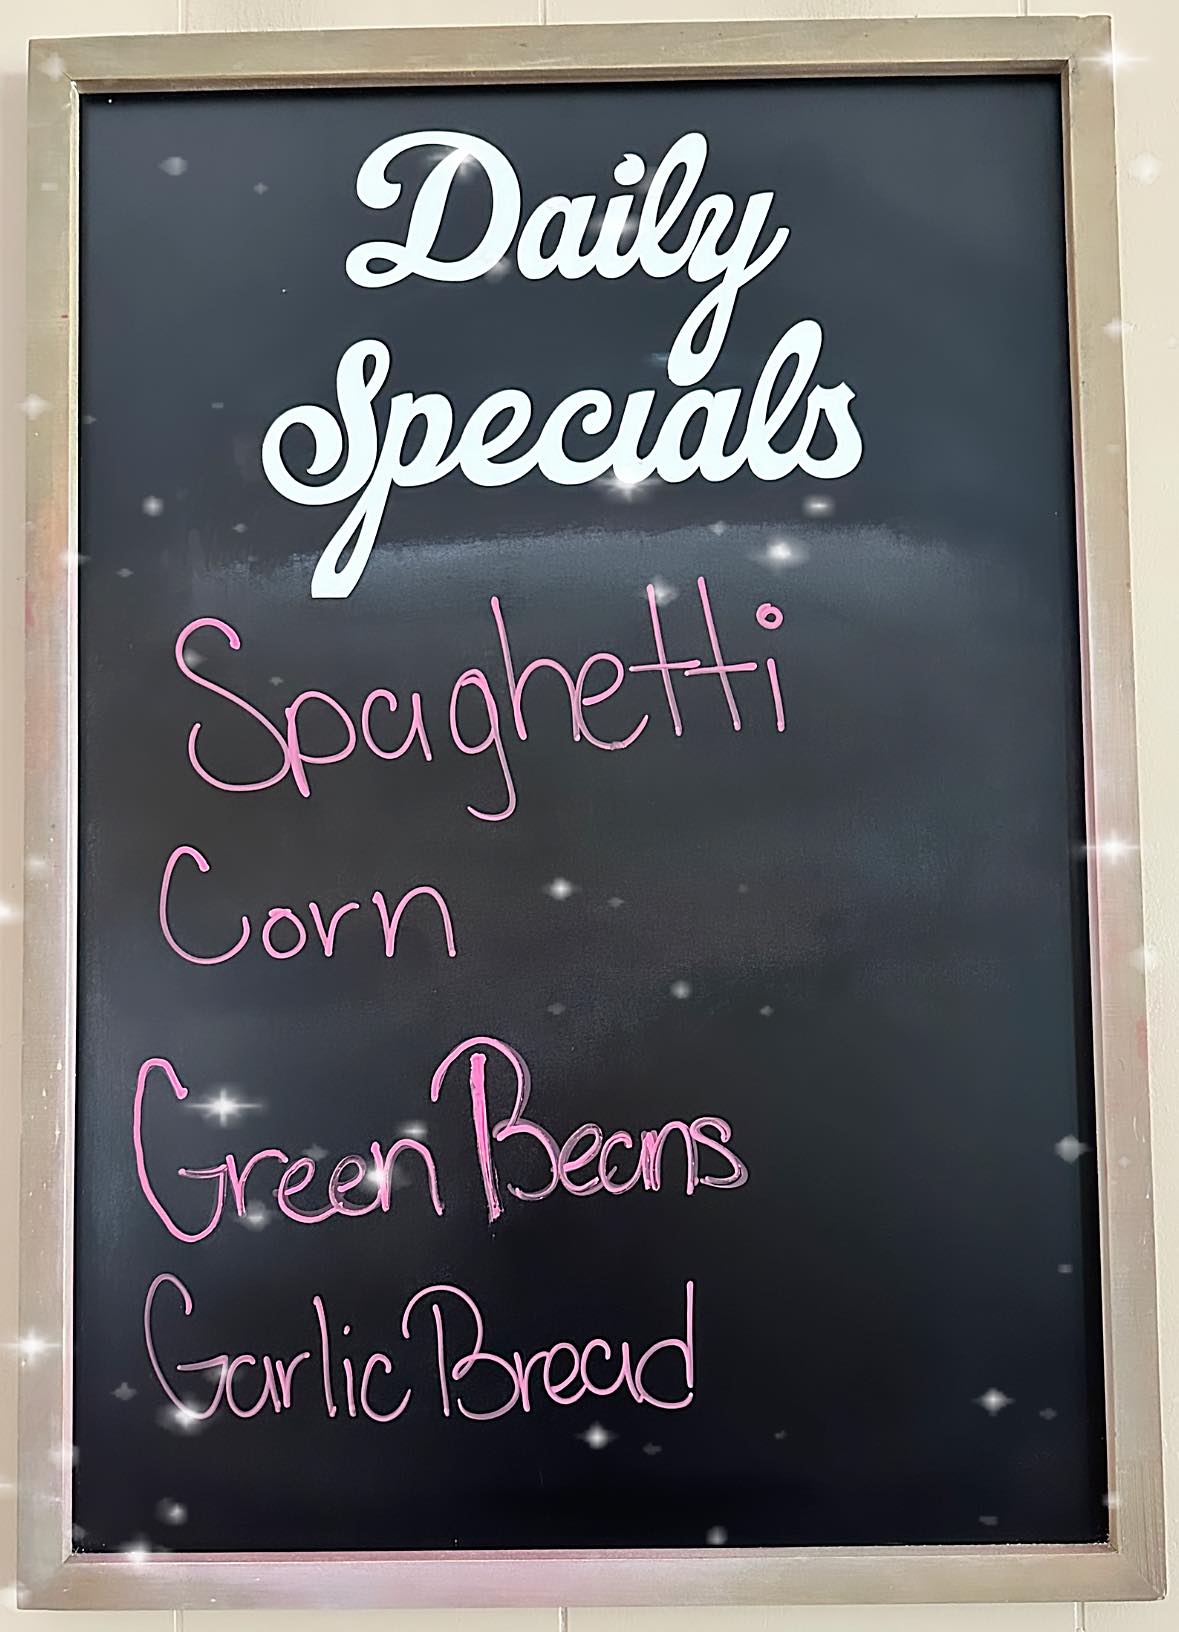 Daily
Specials
Spaghetti
Corn
Green Beans
Garlic Bread